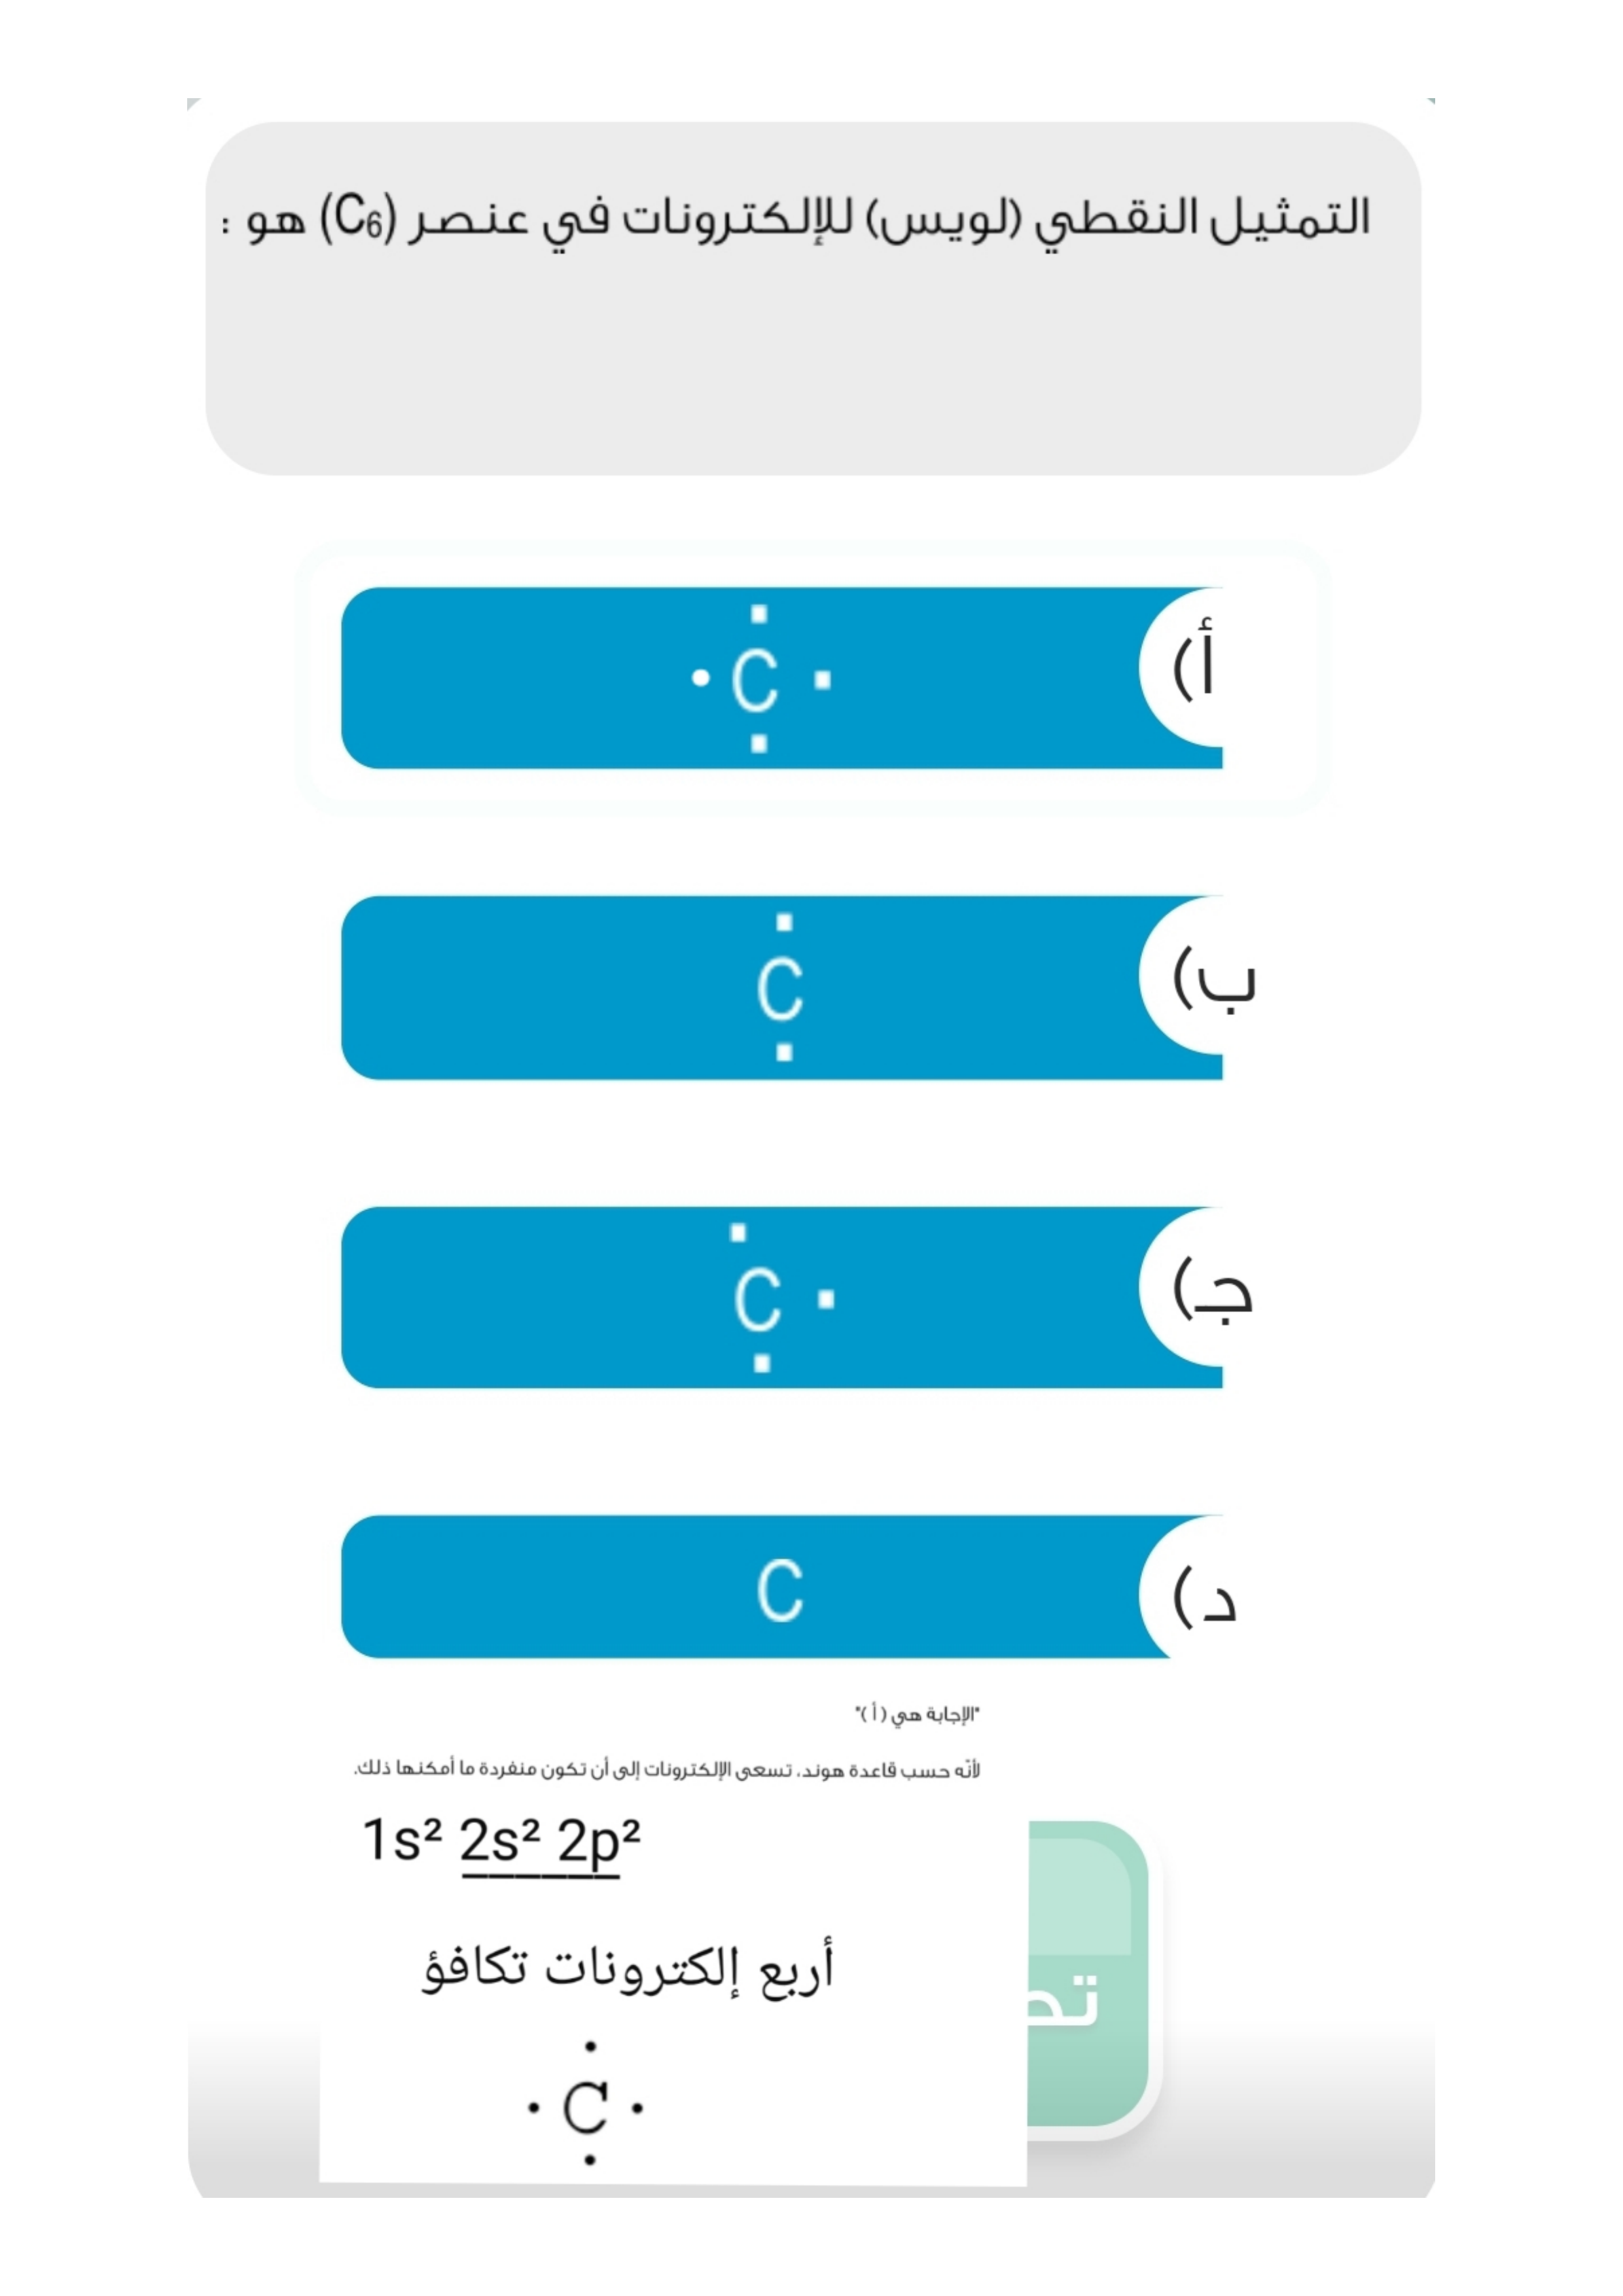 التمثيل النقطي (لويس) للإلكترونات في عنصر (C₆) هو :
أ)
· C ·
ب)
C
ج)
C ·
د)
C
"الإجابة هي ( أ )"
لأنّه حسب قاعدة هوند، تسعى الإلكترونات إلى أن تكون منفردة ما أمكنها ذلك.
1s² 2s² 2p²
أربع إلكترونات تكافؤ
· C ·